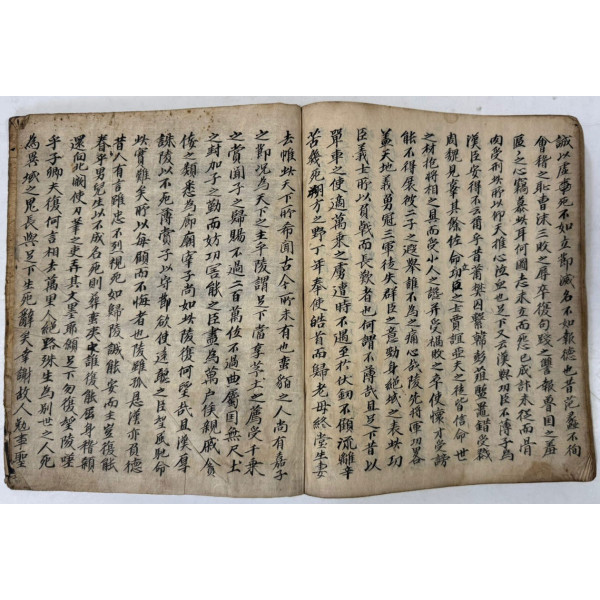 誠以虛死不如立節滅名不如報德也昔范蠡不徇
會稽之恥曹沫三敗之辱卒復句踐之讐報魯國之羞
區〻之心竊慕此耳何圖志未立而怨已成計未從而骨
肉受刑此所以仰天推心泣血也足下又云漢與功臣不薄子為
漢臣安得不云爾乎昔蕭樊囚繫韓彭葅醢錯受戮
周魏見辜其餘佐命功臣之士賈誼亞夫之徒皆信命世
之材抱將相之具而受小人之讒并受禍敗之卒使懷才受謗
能不得展彼二子之遐舉誰不為之痛心哉陵先將軍功畧
蓋天地義勇冠三軍徒失群臣之意身絕域之表此功
臣義士所以負戟而長歎者也何謂不薄哉且足下昔以
單車之使適萬乘之虜遭時不遇至於伏劍不顧流離辛
苦幾死朔方之野丁年奉使皓首而歸老母終堂生妻
去帷此天下所希聞古今所未有也蠻貊之人尚有嘉子
之節況為天下之主乎陵謂足下當享茅土之薦受千乘
之賞聞子之歸賜不過二百萬位不過典屬國無尺土
之封加子之勤而妨功害能之臣盡為萬戶侯親戚貪
佞之類悉為廊廟宰子尚如此陵復何望哉且漢厚
誅陵以不死薄賞子以守節欲使遠聽之臣望風馳命
此實難矣所以每顧而不悔者也陵雖孤恩漢亦負德
昔人有言雖忠不烈視死如歸陵誠能安而主豈復能
眷乎男兒生以不成名死則葬蠻夷中誰復能屈身稽顙
還向北闕使刀筆之吏弄其文墨耶願足下勿復望陵嗟
乎子卿夫復何言相去萬里人絕路殊生為別世之人死
為異域之鬼長與足下生死辭矣幸謝故人勉事聖